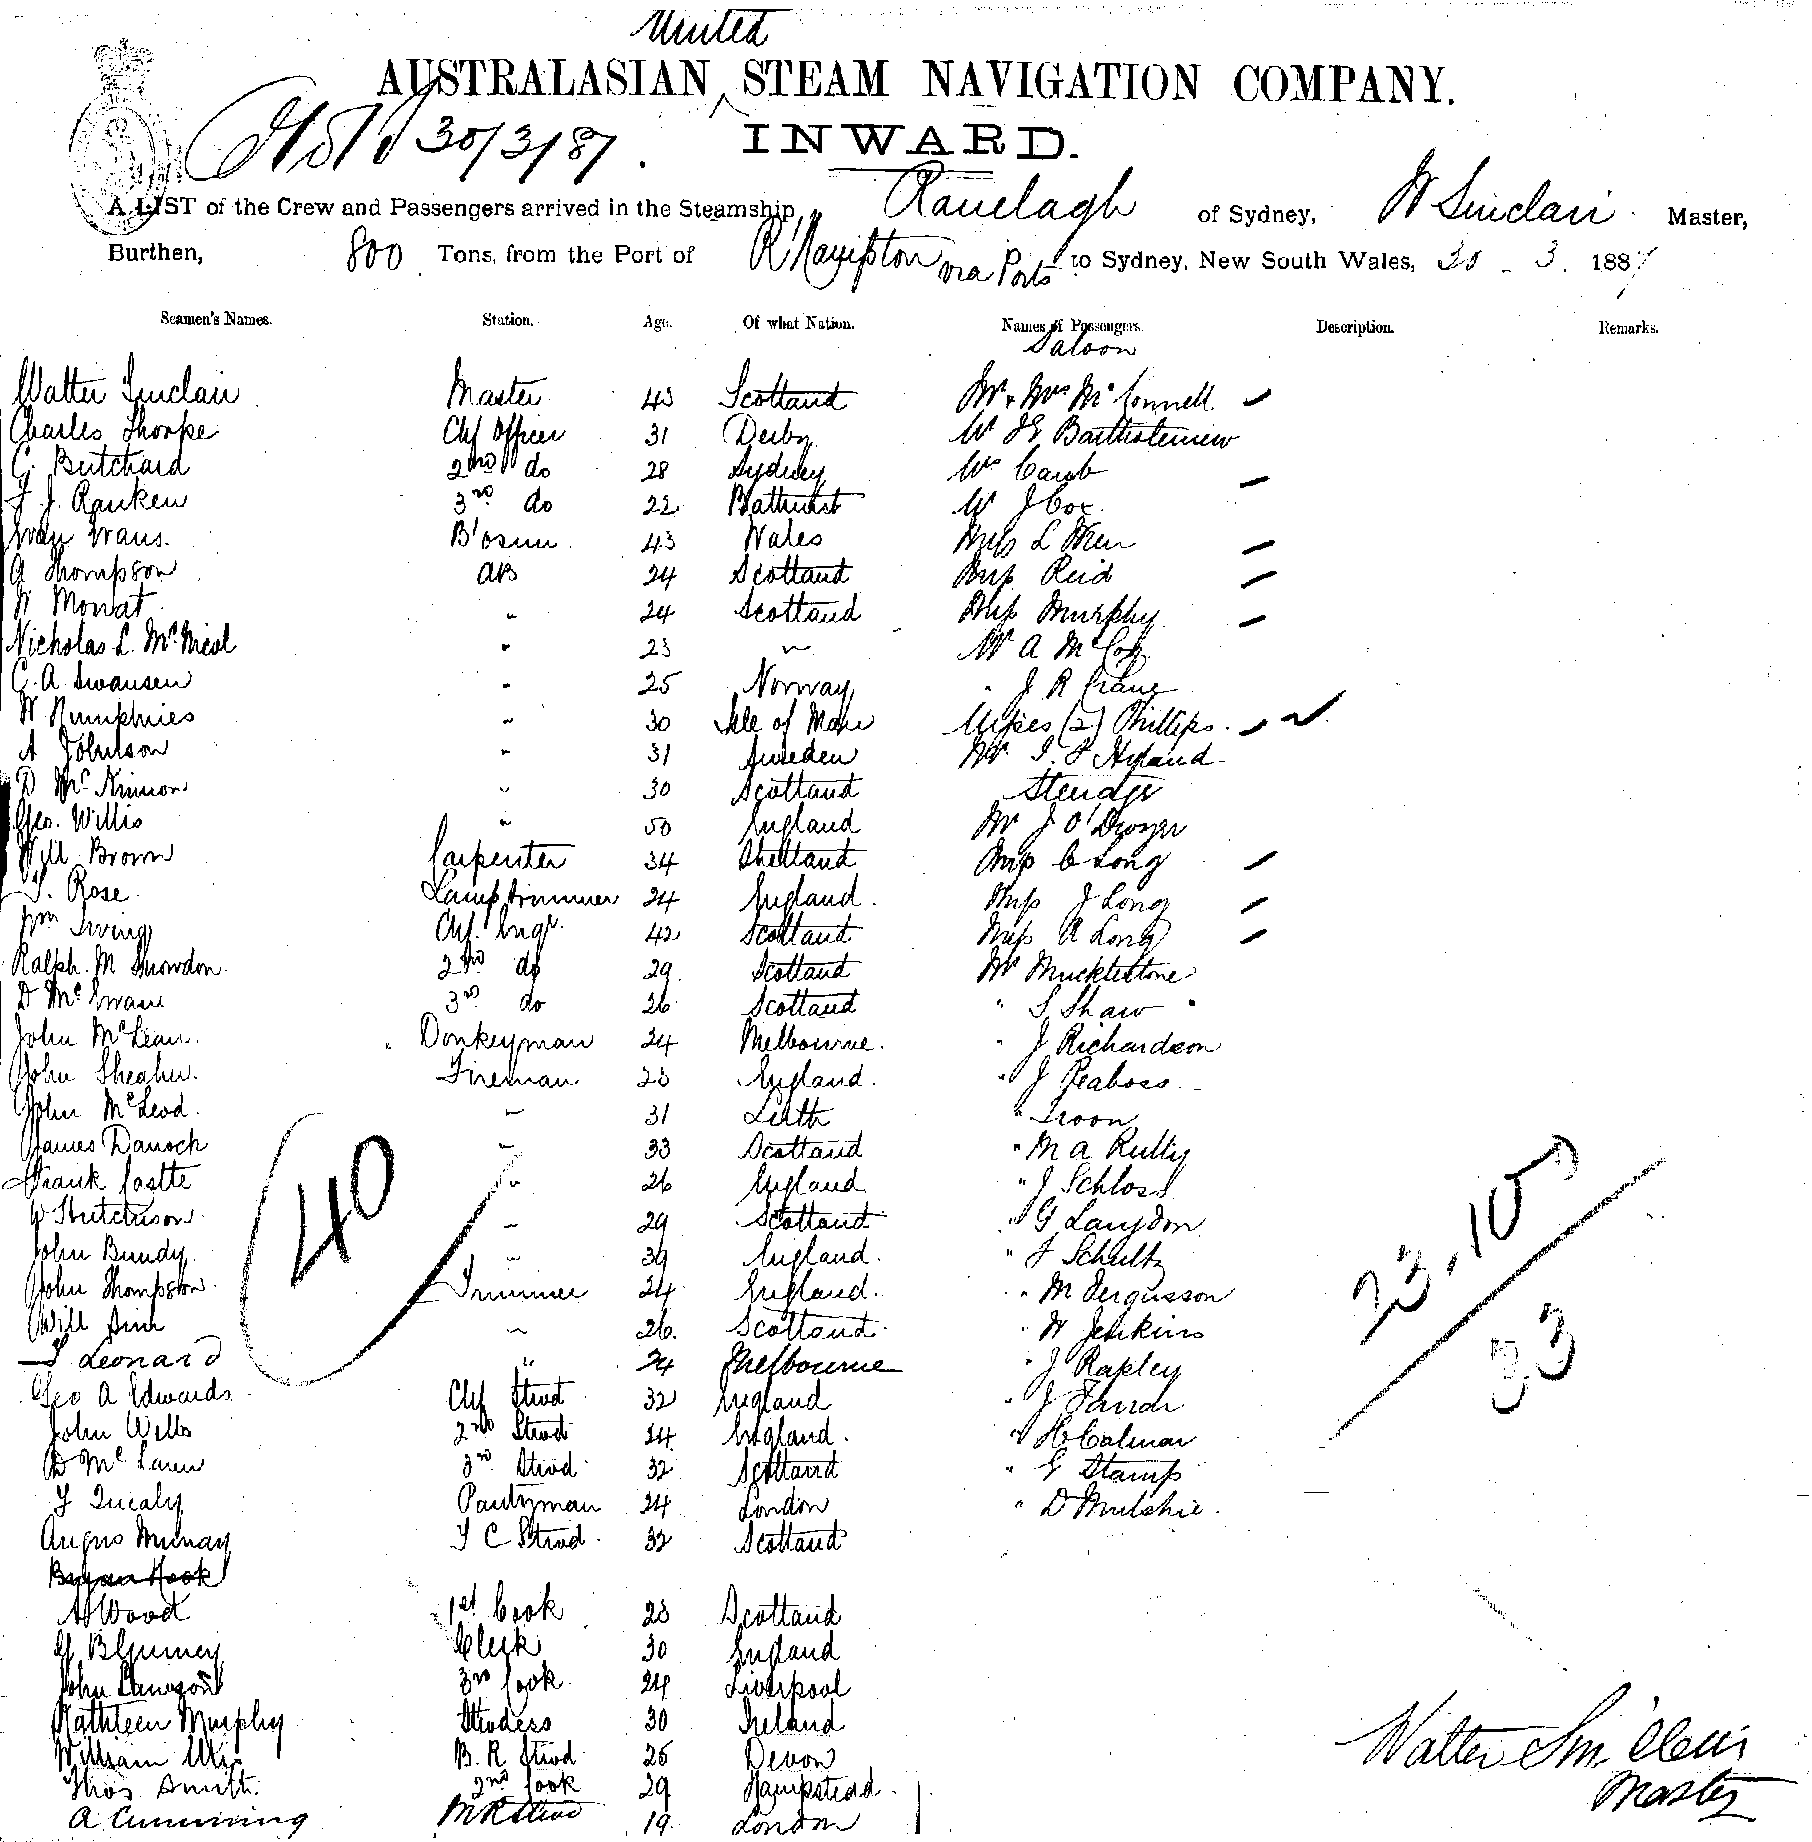 United
AUSTRALASIAN STEAM NAVIGATION COMPANY.
30/3/87.
INWARD.
A LIST of the Crew and Passengers arrived in the Steamship Ranelagh of Sydney, W Sinclair Master,
Burthen, 800 Tons, from the Port of R'Hampton via Ports to Sydney, New South Wales, 30 - 3. 1887
Seamen's Names. Station. Age. Of what Nation. Names of Passengers. Description. Remarks.
Saloon
Walter Sinclair Master 43 Scotland Mr & Mrs McConnell
Charles Thorpe Chf Officer 31 Derby Mr J E Bartholemiew
G. Butchard 2nd do 28 Sydney
F. J. Ranken 3rd do 22 Bathurst Mr J Cox
Evan Evans. B'osun 43 Wales Miss L Wren
A Thompson AB 24 Scotland Miss Reid
W Mowat " 24 Scotland Miss Murphy
Nicholas L. McNicol " 23 " Mr A McCoy
C. A. Swansen " 25 Norway " J R Crane
W Humphries " 30 Isle of Man Misses (2) Phillips
A Johnson " 31 Sweden Mr Hyland
D McKinnon " 30 Scotland Steerage
Geo. Willis " 50 England Mr J O'Dwyer
Will Brown Carpenter 34 Shetland Miss C Long
T. Rose Lamptrimmer 24 England. Miss J Long
Wm Irving Chf. Engr. 42 Scotland Miss A Long
Ralph. M Snowdon. 2nd do 29 Scotland Mr Mucklestone
D McEwan 3rd do 26 Scotland " S Shaw "
John McLean. Donkeyman 24 Melbourne. " J Richardson
John Sheahen. Fireman 23 England. " J Peaboss
John McLeod. " 31 Leith " Troon
James Danoch " 33 Scotland " M A Rutty
Frank Costte " 26 England " J Schloss
W Hutchison " 29 Scotland " G Langdon
John Bundy " 39 England. " F Schultz
John Thompson Trimmer 24 England. " M Fergusson
Will " 26. Scotland " W Jenkins
T Leonard " 24 Melbourne " J Rapley
Geo A Edwards Chf Stwd 32 England " J
John Wills 2nd Stwd 24 England. " H Calman
D McLaren 3rd Stwd 32 Scotland " G Stamp
Pantryman 24 London " D
Angus Murray F C Stwd. 32 Scotland
Bryan Hook
A Wood 1st Cook 23 Scotland
Clerk 30 England
John 3rd Cook 24 Liverpool
Kathleen Murphy Stwdess 30 Ireland
William B. R Stwd 26 Devon
Thos Smith. 2nd Cook 29 Hampstead.
A Cumming M R Stwd 19 London
40
23.10
33
Walter Sinclair
Master